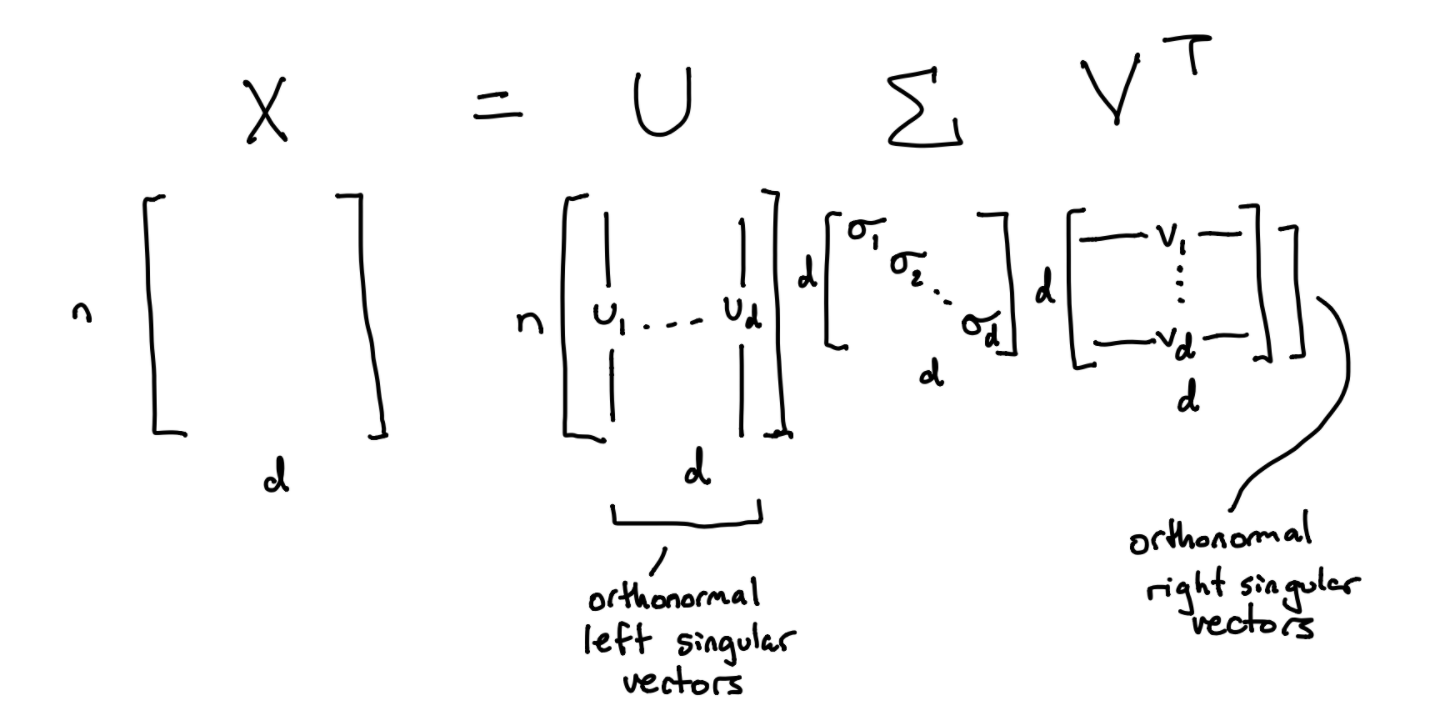 X = U Σ V^T
n [ ] d
n [ U₁ ... U_d ] d
d [ σ₁ σ₂ ⋱ σ_d ] d
d [ — V₁ — ⋮ — V_d — ] d
orthonormal
left singular
vectors
orthonormal
right singular
vectors